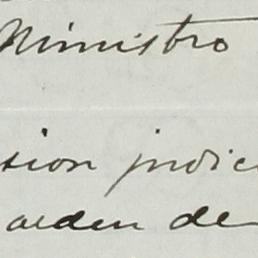 Ministro
sion judici
orden de